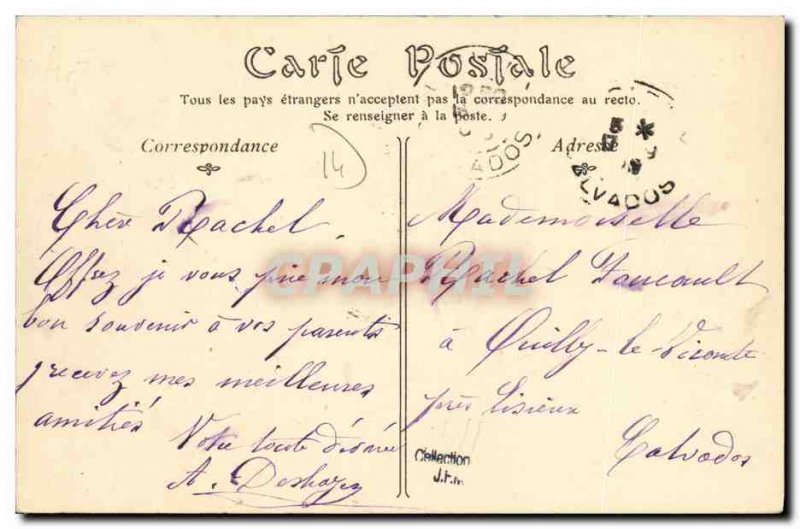 Carte Postale
Tous les pays étrangers n'acceptent pas la correspondance au recto.
Se renseigner à la poste.
Correspondance
14
Adresse
CALVADOS
Chèr Rachel.
Offrez je vous prie mon
bon souvenir à vos parents
recevez mes meilleures
amitiés
Votre toute dévouée
A. Deshayes
Mademoiselle
Rachel Foucault
à Ouilly-le-Vicomte
près Lisieux
Calvados
Collection
J.F.M
CPAPHIL